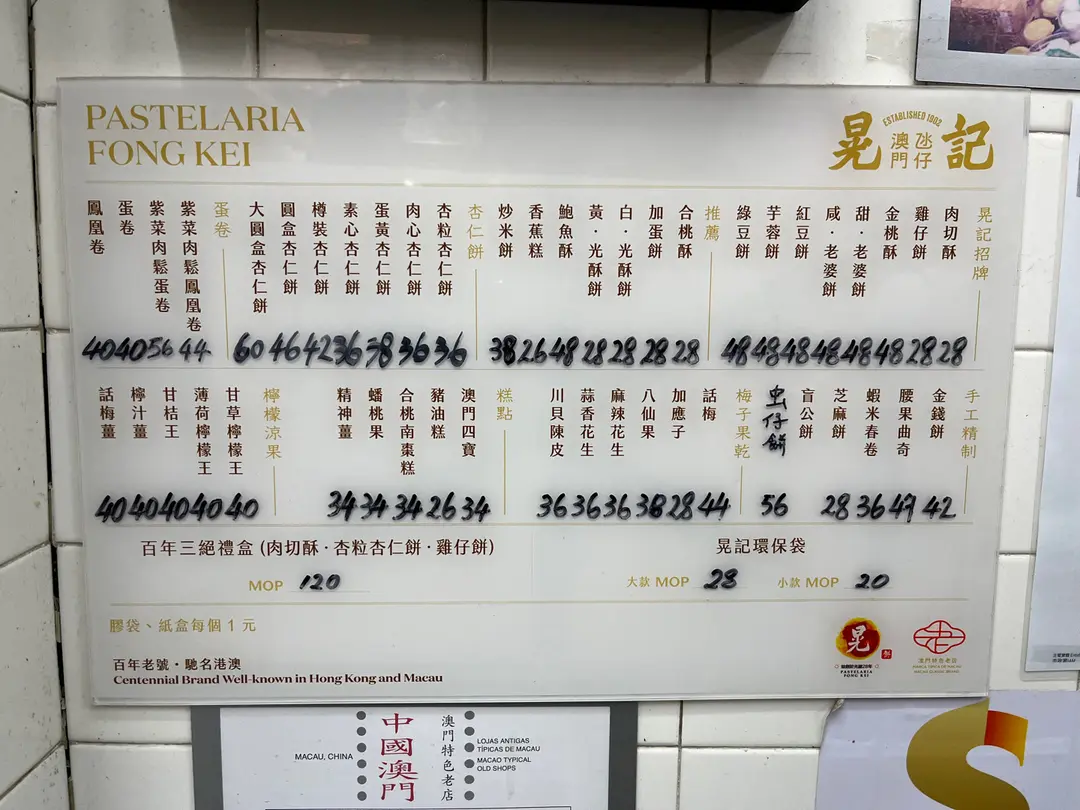 PASTELARIA
FONG KEI
晃記
ESTABLISHED 1902
澳門
氹仔
晃記招牌
肉切酥 28
雞仔餅 28
金桃酥 48
甜·老婆餅 48
咸·老婆餅 48
紅豆餅 48
芋蓉餅 48
綠豆餅 48
推薦
合桃酥 28
加蛋餅 28
白·光酥餅 28
黃·光酥餅 28
鮑魚酥 48
香蕉糕 26
炒米餅 38
杏仁餅
杏粒杏仁餅 36
肉心杏仁餅 36
蛋黃杏仁餅 38
素心杏仁餅 36
樽裝杏仁餅 42
圓盒杏仁餅 46
大圓盒杏仁餅 60
蛋卷
紫菜肉鬆鳳凰卷 44
紫菜肉鬆蛋卷 56
蛋卷 40
鳳凰卷 40
手工精制
金錢餅 42
腰果曲奇 47
蝦米春卷 36
芝麻餅 28
盲公餅
虫仔餅 56
梅子果乾
話梅 44
加應子 28
八仙果 38
麻辣花生 36
蒜香花生 36
川貝陳皮 36
糕點
澳門四寶 34
豬油糕 26
合桃南棗糕 34
蟠桃果 34
精神薑 34
檸檬涼果
甘草檸檬王 40
薄荷檸檬王 40
甘桔王 40
檸汁薑 40
話梅薑 40
百年三絕禮盒 (肉切酥·杏粒杏仁餅·雞仔餅)
MOP 120
晃記環保袋
大款 MOP 28 小款 MOP 20
膠袋、紙盒每個 1 元
百年老號·馳名港澳
Centennial Brand Well-known in Hong Kong and Macau
晃
PASTELARIA
FONG KEI
澳門特色老店
MACAU, CHINA
中國澳門
澳門特色老店
LOJAS ANTIGAS
TÍPICAS DE MACAU
MACAO TYPICAL
OLD SHOPS